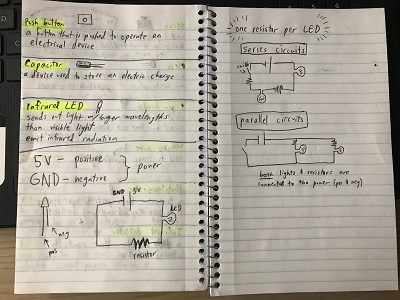 Push button
a button that is pushed to operate an
electrical device
Capacitor
a device used to store an electric charge
Infrared LED
sends out light w/ longer wavelengths
than visible light
emit infrared radiation
5V - positive
GND - negative
power
GND
5V
LED
resistor
neg
pos
one resistor per LED
Series circuits
parallel circuits
both lights & resistors are
connected to the power (pos & neg)